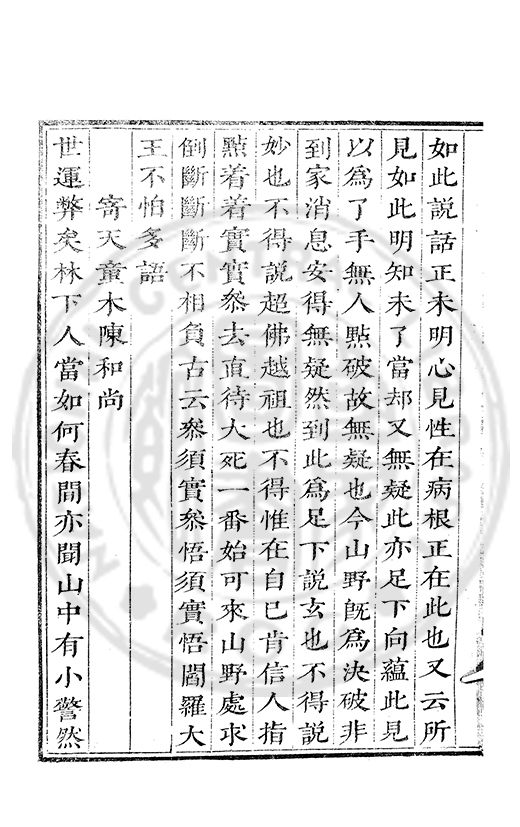 如此説話正未明心見性在病根正在此也又云所
見如此明知未了當却又無疑此亦足下向蘊此見
以爲了手無人㸃破故無疑也今山野旣爲決破非
到家消息安得無疑然到此爲足下説玄也不得説
妙也不得説超佛越祖也不得惟在自已肯信人指
㸃着着實實叅去直待大死一番始可來山野處求
倒斷斷斷不相負古云叅須實叅悟須實悟閻羅大
王不怕多語
寄天童木陳和尚
世運弊矣林下人當如何春間亦聞山中有小警然